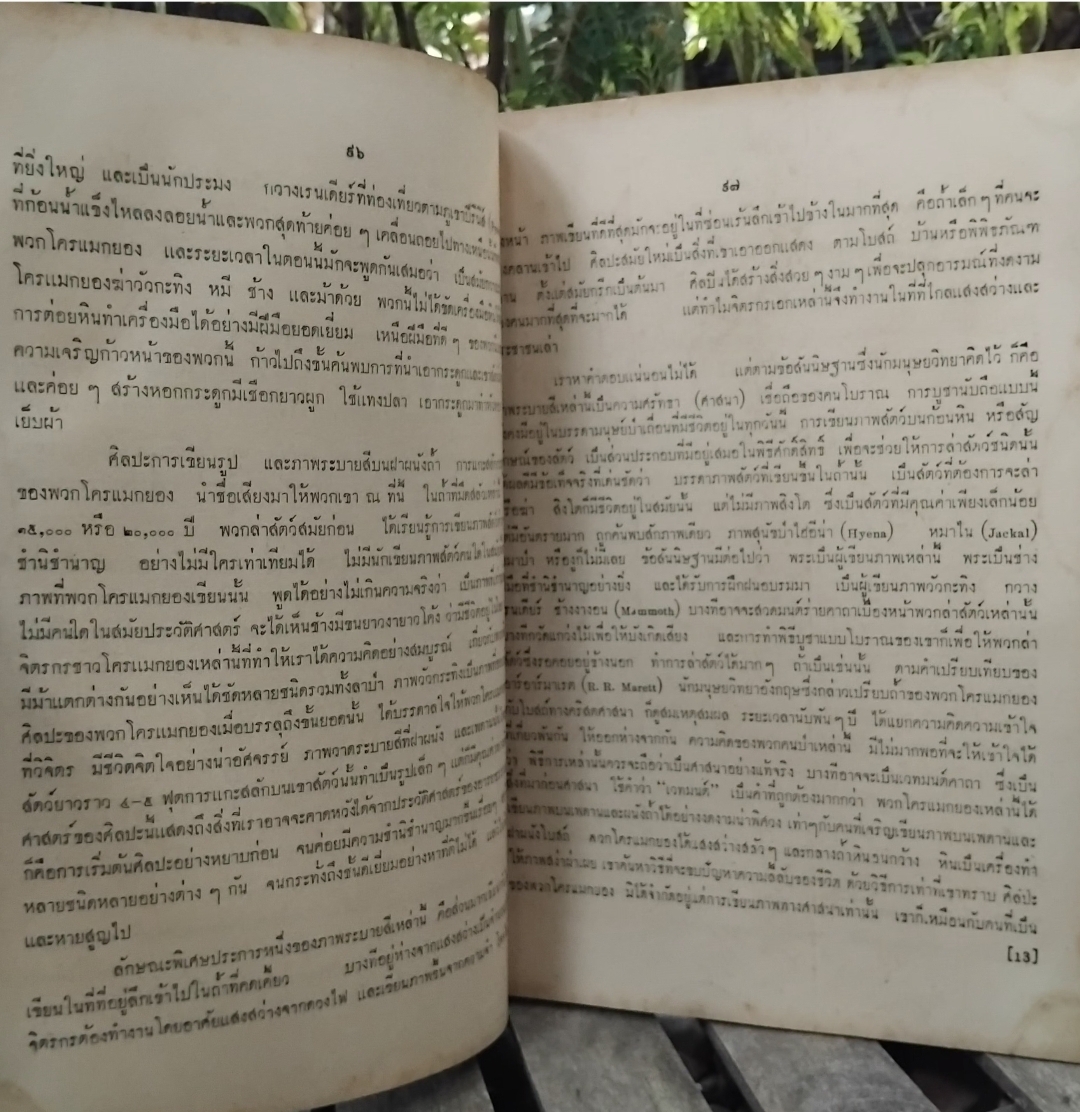 ๙๖
ที่ยิ่งใหญ่ และเป็นนักประมง กวางเรนเดียร์ที่ท่องเที่ยวตามภูเขาปิรินีส์
ที่ก้อนน้ำแข็งไหลลงลอยน้ำและพวกสุดท้ายค่อย ๆ เคลื่อนถอยไปทางเหนือ
พวกโครแมกยอง และระยะเวลาในตอนนี้มักจะพูดกันเสมอว่า เป็นสมัย
โครแมกยองฆ่าวัวกะทิง หมี ช้าง และม้าด้วย พวกนี้ไม่ได้ขัดเครื่องมือ
การต่อยหินทำเครื่องมือได้อย่างมีฝีมือยอดเยี่ยม เหนือฝีมือที่ดี ๆ ของพวก
ความเจริญก้าวหน้าของพวกนี้ ก้าวไปถึงขั้นค้นพบการที่นำเอากระดูกและเขา
และค่อย ๆ สร้างหอกกระดูกมีเชือกยาวผูก ใช้แทงปลา เอากระดูกมาทำ
เย็บผ้า
ศิลปะการเขียนรูป และภาพระบายสีบนฝาผนังถ้ำ การแกะสลัก
ของพวกโครแมกยอง นำชื่อเสียงมาให้พวกเขา ณ ที่นี้ ในถ้ำที่มืด
๑๕,๐๐๐ หรือ ๒๐,๐๐๐ ปี พวกล่าสัตว์สมัยก่อน ได้เรียนรู้การเขียนภาพ
ชำนิชำนาญ อย่างไม่มีใครเท่าเทียมได้ ไม่มีนักเขียนภาพสัตว์คนใดใน
ภาพที่พวกโครแมกยองเขียนนั้น พูดได้อย่างไม่เกินความจริงว่า เป็นภาพ
ไม่มีคนใดในสมัยประวัติศาสตร์ จะได้เห็นช้างมีขนยาวงายาวโค้ง
จิตรกรชาวโครแมกยองเหล่านี้ที่ทำให้เราได้ความคิดอย่างสมบูรณ์ เกี่ยวกับ
มีม้าแตกต่างกันอย่างเห็นได้ชัดหลายชนิดรวมทั้งลาป่า ภาพวัวกระทิงเป็นภาพ
ศิลปะของพวกโครแมกยองเมื่อบรรลุถึงขั้นยอดนั้น ได้บรรดาลใจให้พวกโครแมกยอง
ที่วิจิตร มีชีวิตจิตใจอย่างน่าอัศจรรย์ ภาพวาดระบายสีที่ฝาผนัง และเพดาน
สัตว์ยาวราว ๔-๕ ฟุตการแกะสลักบนเขาสัตว์นั้นทำเป็นรูปเล็ก ๆ
ศาสตร์ของศิลปะนี้แสดงถึงสิ่งที่เราอาจจะคาดหวังได้จากประวัติศาสตร์ของ
ก็คือการเริ่มต้นศิลปะอย่างหยาบก่อน จนค่อยมีความชำนิชำนาญมากขึ้นเรื่อย ๆ
หลายชนิดหลายอย่างต่าง ๆ กัน จนกระทั่งถึงชั้นดีเยี่ยมอย่างหาที่ติไม่ได้
และหายสูญไป
ลักษณะพิเศษประการหนึ่งของภาพระบายสีเหล่านี้ คือส่วนมาก
เขียนในที่ที่อยู่ลึกเข้าไปในถ้ำที่คดเคี้ยว บางทีอยู่ห่างจากแสงสว่างเป็น
จิตรกรต้องทำงานโดยอาศัยแสงสว่างจากดวงไฟ และเขียนภาพขึ้นจากความจำ
๙๗
หน้า ภาพเขียนที่ดีที่สุดมักจะอยู่ในที่ซ่อนเร้นลึกเข้าไปข้างในมากที่สุด คือถ้ำเล็ก ๆ ที่คนจะ
คลานเข้าไป ศิลปะสมัยใหม่เป็นสิ่งที่เขาเอาออกแสดง ตามโบสถ์ บ้านหรือพิพิธภัณฑ
ตั้งแต่สมัยกรีกเป็นต้นมา ศิลปินได้สร้างสิ่งสวย ๆ งาม ๆ เพื่อจะปลุกอารมณ์ที่งดงาม
คนมากที่สุดที่จะมากได้ แต่ทำไมจิตรกรเอกเหล่านี้จึงทำงานในที่ที่ไกลแสงสว่างและ
ประชาชนเล่า
เราหาคำตอบแน่นอนไม่ได้ แต่ตามข้อสันนิษฐานซึ่งนักมนุษยวิทยาคิดไว้ ก็คือ
ภาพระบายสีเหล่านี้เป็นความศรัทธา (ศาสนา) เชื่อถือของคนโบราณ การบูชานับถือแบบนี้
คงมีอยู่ในบรรดามนุษย์ป่าเถื่อนที่มีชีวิตอยู่ในทุกวันนี้ การเขียนภาพสัตว์บนก้อนหิน หรือสัญ
ลักษณ์ของสัตว์ เป็นส่วนประกอบที่มีอยู่เสมอในพิธีศักดิ์สิทธิ์ เพื่อจะช่วยให้การล่าสัตว์ชนิดนั้น
มีข้อเท็จจริงที่เด่นชัดว่า บรรดาภาพสัตว์ที่เขียนขึ้นในถ้ำนั้น เป็นสัตว์ที่ต้องการจะล่า
สิงโตก็มีชีวิตอยู่ในสมัยนั้น แต่ไม่มีภาพสิงโต ซึ่งเป็นสัตว์ที่มีคุณค่าเพียงเล็กน้อย
มีอันตรายมาก ถูกค้นพบสักภาพเดียว ภาพสุนัขป่าไฮอีน่า (Hyena) หมาใน (Jackal)
หมาป่า หรืองูก็ไม่มีเลย ข้อสันนิษฐานมีต่อไปว่า พระเป็นผู้เขียนภาพเหล่านี้ พระเป็นช่าง
ฝีมือที่ชำนิชำนาญอย่างยิ่ง และได้รับการฝึกฝนอบรมมา เป็นผู้เขียนภาพวัวกะทิง กวาง
เรนเดียร์ ช้างงางอน (Mammoth) บางทีอาจจะสวดมนต์ร่ายคาถาเบื้องหน้าพวกล่าสัตว์เหล่านั้น
บางทีกวัดแกว่งไม้เพื่อให้บังเกิดเสียง และการทำพิธีบูชาแบบโบราณของเขาก็เพื่อให้พวกล่า
สัตว์ซึ่งรอคอยอยู่ข้างนอก ทำการล่าสัตว์ได้มาก ๆ ถ้าเป็นเช่นนั้น ตามคำเปรียบเทียบของ
อาร์อาร์มาเรต (R. R. Marett) นักมนุษยวิทยาอังกฤษซึ่งกล่าวเปรียบถ้ำของพวกโครแมกยอง
กับโบสถ์ทางคริสตศาสนา ก็ดูสมเหตุสมผล ระยะเวลานับพัน ๆ ปี ได้แยกความคิดความเข้าใจ
ที่เกี่ยวพันกัน ให้ออกห่างจากกัน ความคิดของพวกคนป่าเหล่านี้ มีไม่มากพอที่จะให้เข้าใจได้
ว่า พิธีการเหล่านั้นควรจะถือว่าเป็นศาสนาอย่างแท้จริง บางทีอาจจะเป็นเวทมนต์คาถา ซึ่งเป็น
สิ่งที่มาก่อนศาสนา ใช้คำว่า "เวทมนต์" เป็นคำที่ถูกต้องมากกว่า พวกโครแมกยองเหล่านี้ได้
เขียนภาพบนเพดานและผนังถ้ำได้อย่างงดงามน่าพิศวง เท่า ๆ กับคนที่เจริญเขียนภาพบนเพดานและ
ฝาผนังโบสถ์ พวกโครแมกยองใช้แสงสว่างสลัว ๆ และกลางถ้ำหินขนกว้าง หินเป็นเครื่องทำ
ให้ภาพสง่าผ่าเผย เราค้นหาวิธีที่จะขบปัญหาความลี้ลับของชีวิต ด้วยวิธีการเท่าที่เขาทราบ ศิลปะ
ของพวกโครแมกยอง มิได้จำกัดอยู่แต่การเขียนภาพทางศาสนาเท่านั้น เขาก็เหมือนกับคนที่เป็น
[13]